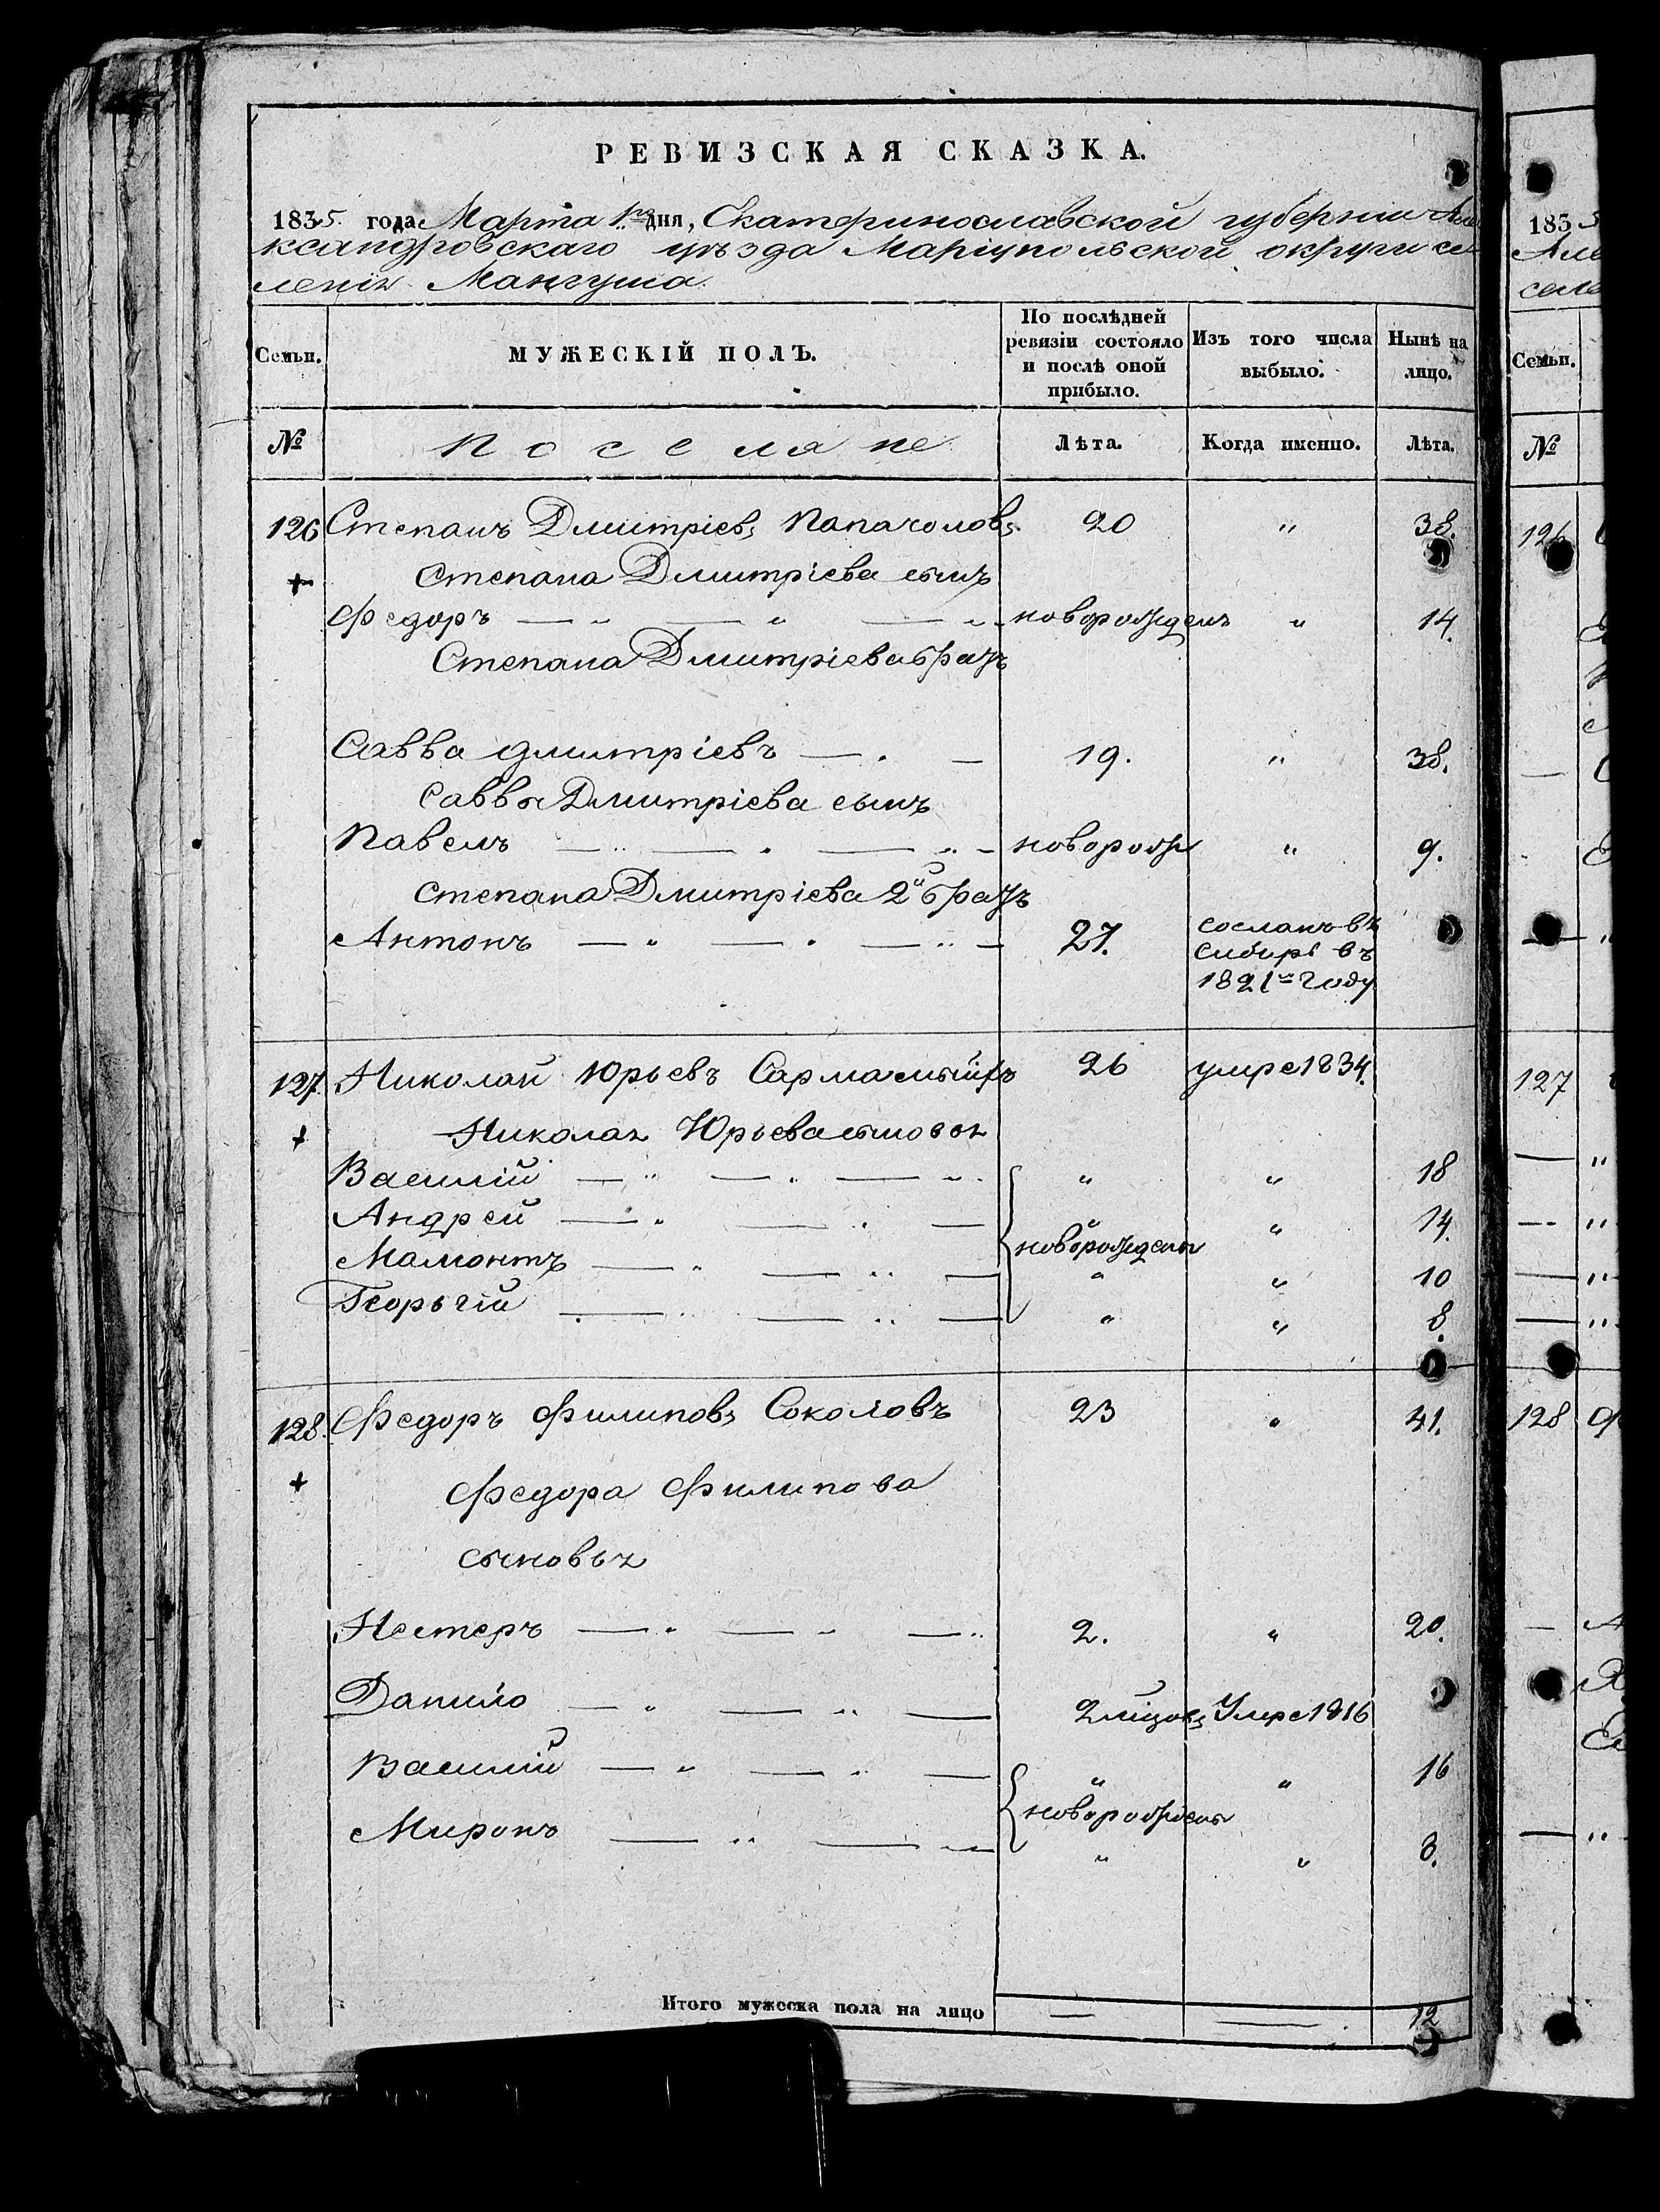 РЕВИЗСКАЯ СКАЗКА.
1835 года Марта 1го дня, Екатеринославской губернии Але
ксандровскаго уѣзда Маріупольской округи се
ленія Мангуша.
Семьи. МУЖЕСКІЙ ПОЛЪ. По послѣдней ревизіи состояло и послѣ оной прибыло. Изъ того числа выбыло. Нынѣ на лицо.
№ Поселяне Лѣта. Когда именно. Лѣта.
126 Степанъ Дмитріевъ Папачоловъ 20 " 38.
Степана Дмитріева сынъ
Федоръ — " — " — " новорожденъ " 14.
Степана Дмитріева братъ
Савва Дмитріевъ — " — 19. " 38.
Саввы Дмитріева сынъ
Павелъ — " — " — " — новорож " 9.
Степана Дмитріева 2й братъ
Антонъ — " — " — " — 27. сосланъ въ
Сибирь въ
1821м году
127 Николай Юрьевъ 26 умре 1834.
Николая Юрьева сыновья
Василій — " — " — " " " 18
Андрей — " — " — " " 14.
Мамонтъ — " — " — новорождены " " 10
Георьгій — " — " — " " 8.
128. Федоръ Филиповъ Соколовъ 23 " 41.
Федора Филипова
сыновья
Нестеръ — " — " — " 2. " 20.
Данило — " — " — 2 Умре 1816
Василій — " — " — " " 16
новорождены
Миронъ — " — " " " 8.
Итого мужеска пола на лицо — — 12
1835
Але
селе
Семьи.
№
126
127
128